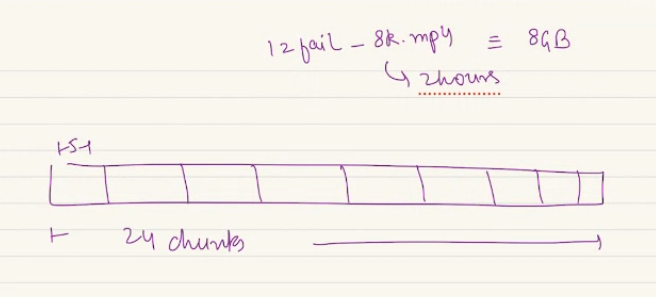 12fail - 8k.mp4 ≡ 8GB
↳ 2hours
⊢5⊣
24 chunks